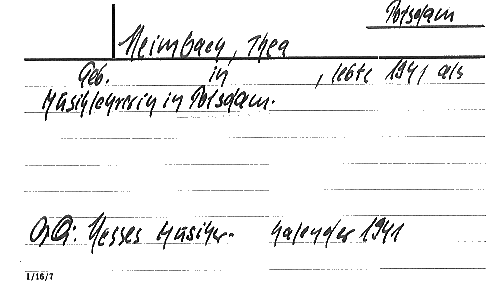 Potsdam
Heimbach, Thea
Geb. in , lebte 1941 als
Musiklehrerin in Potsdam.
Qu: Hesses Musiker- Kalender 1941
1/16/7